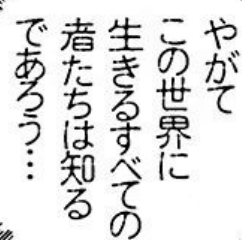 やがて
この世界に
生きるすべての
者たちは知る
であろう…